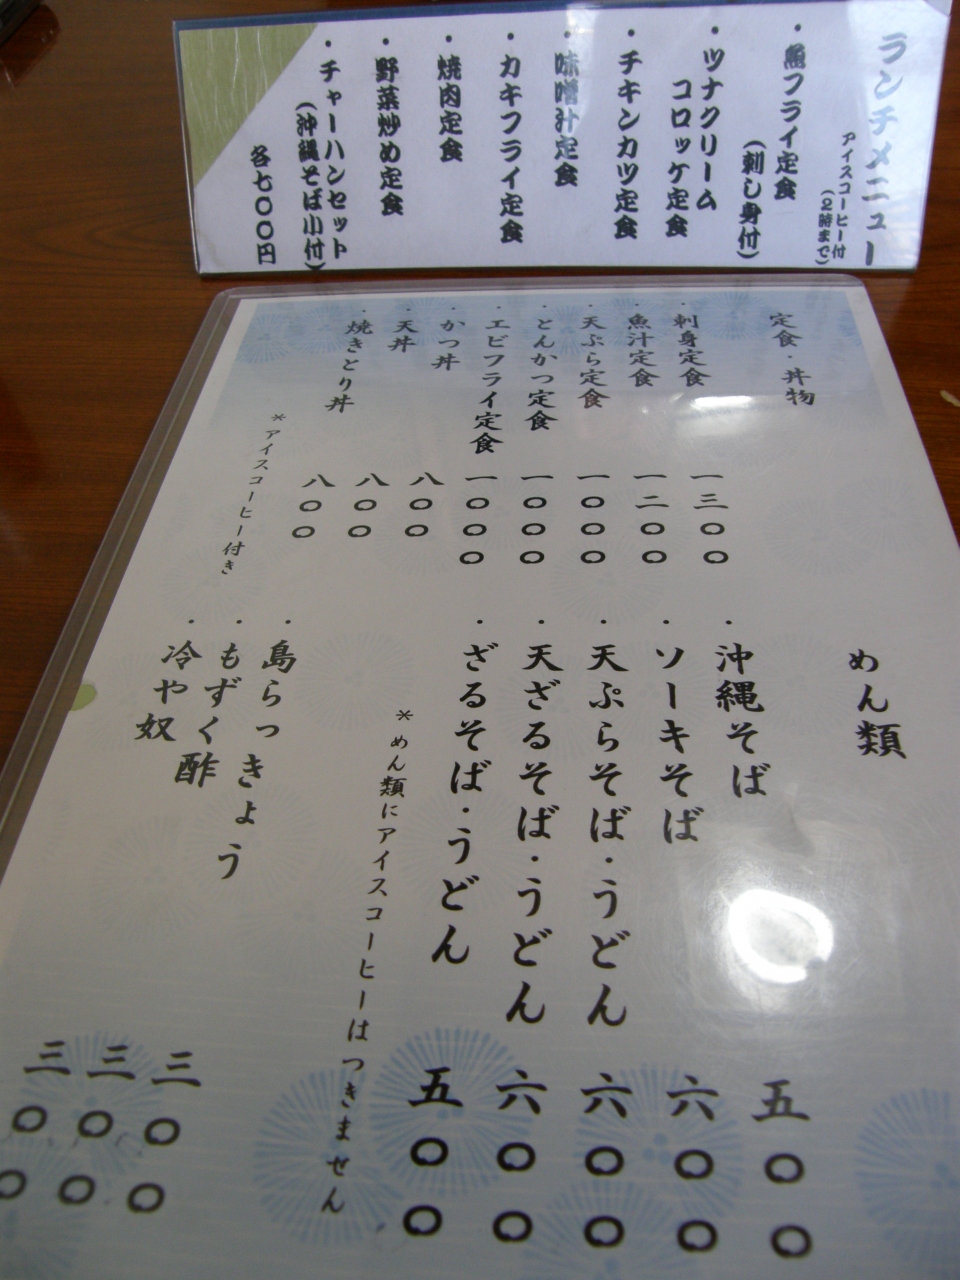 ランチメニュー
アイスコーヒー付
(2時まで)
・魚フライ定食
(刺し身付)
・ツナクリーム
コロッケ定食
・チキンカツ定食
・味噌汁定食
・カキフライ定食
・焼肉定食
・野菜炒め定食
・チャーハンセット
(沖縄そば小付)
各七〇〇円
定食・丼物
・刺身定食 一三〇〇
・魚汁定食 一二〇〇
・天ぷら定食 一〇〇〇
・とんかつ定食 一〇〇〇
・エビフライ定食 一〇〇〇
・かつ丼 八〇〇
・天丼 八〇〇
・焼きとり丼 八〇〇
*アイスコーヒー付き
めん類
・沖縄そば 五〇〇
・ソーキそば 六〇〇
・天ぷらそば・うどん 六〇〇
・天ざるそば・うどん 六〇〇
・ざるそば・うどん 五〇〇
*めん類にアイスコーヒーはつきません
・島らっきょう 三〇〇
・もずく酢 三〇〇
・冷や奴 三〇〇